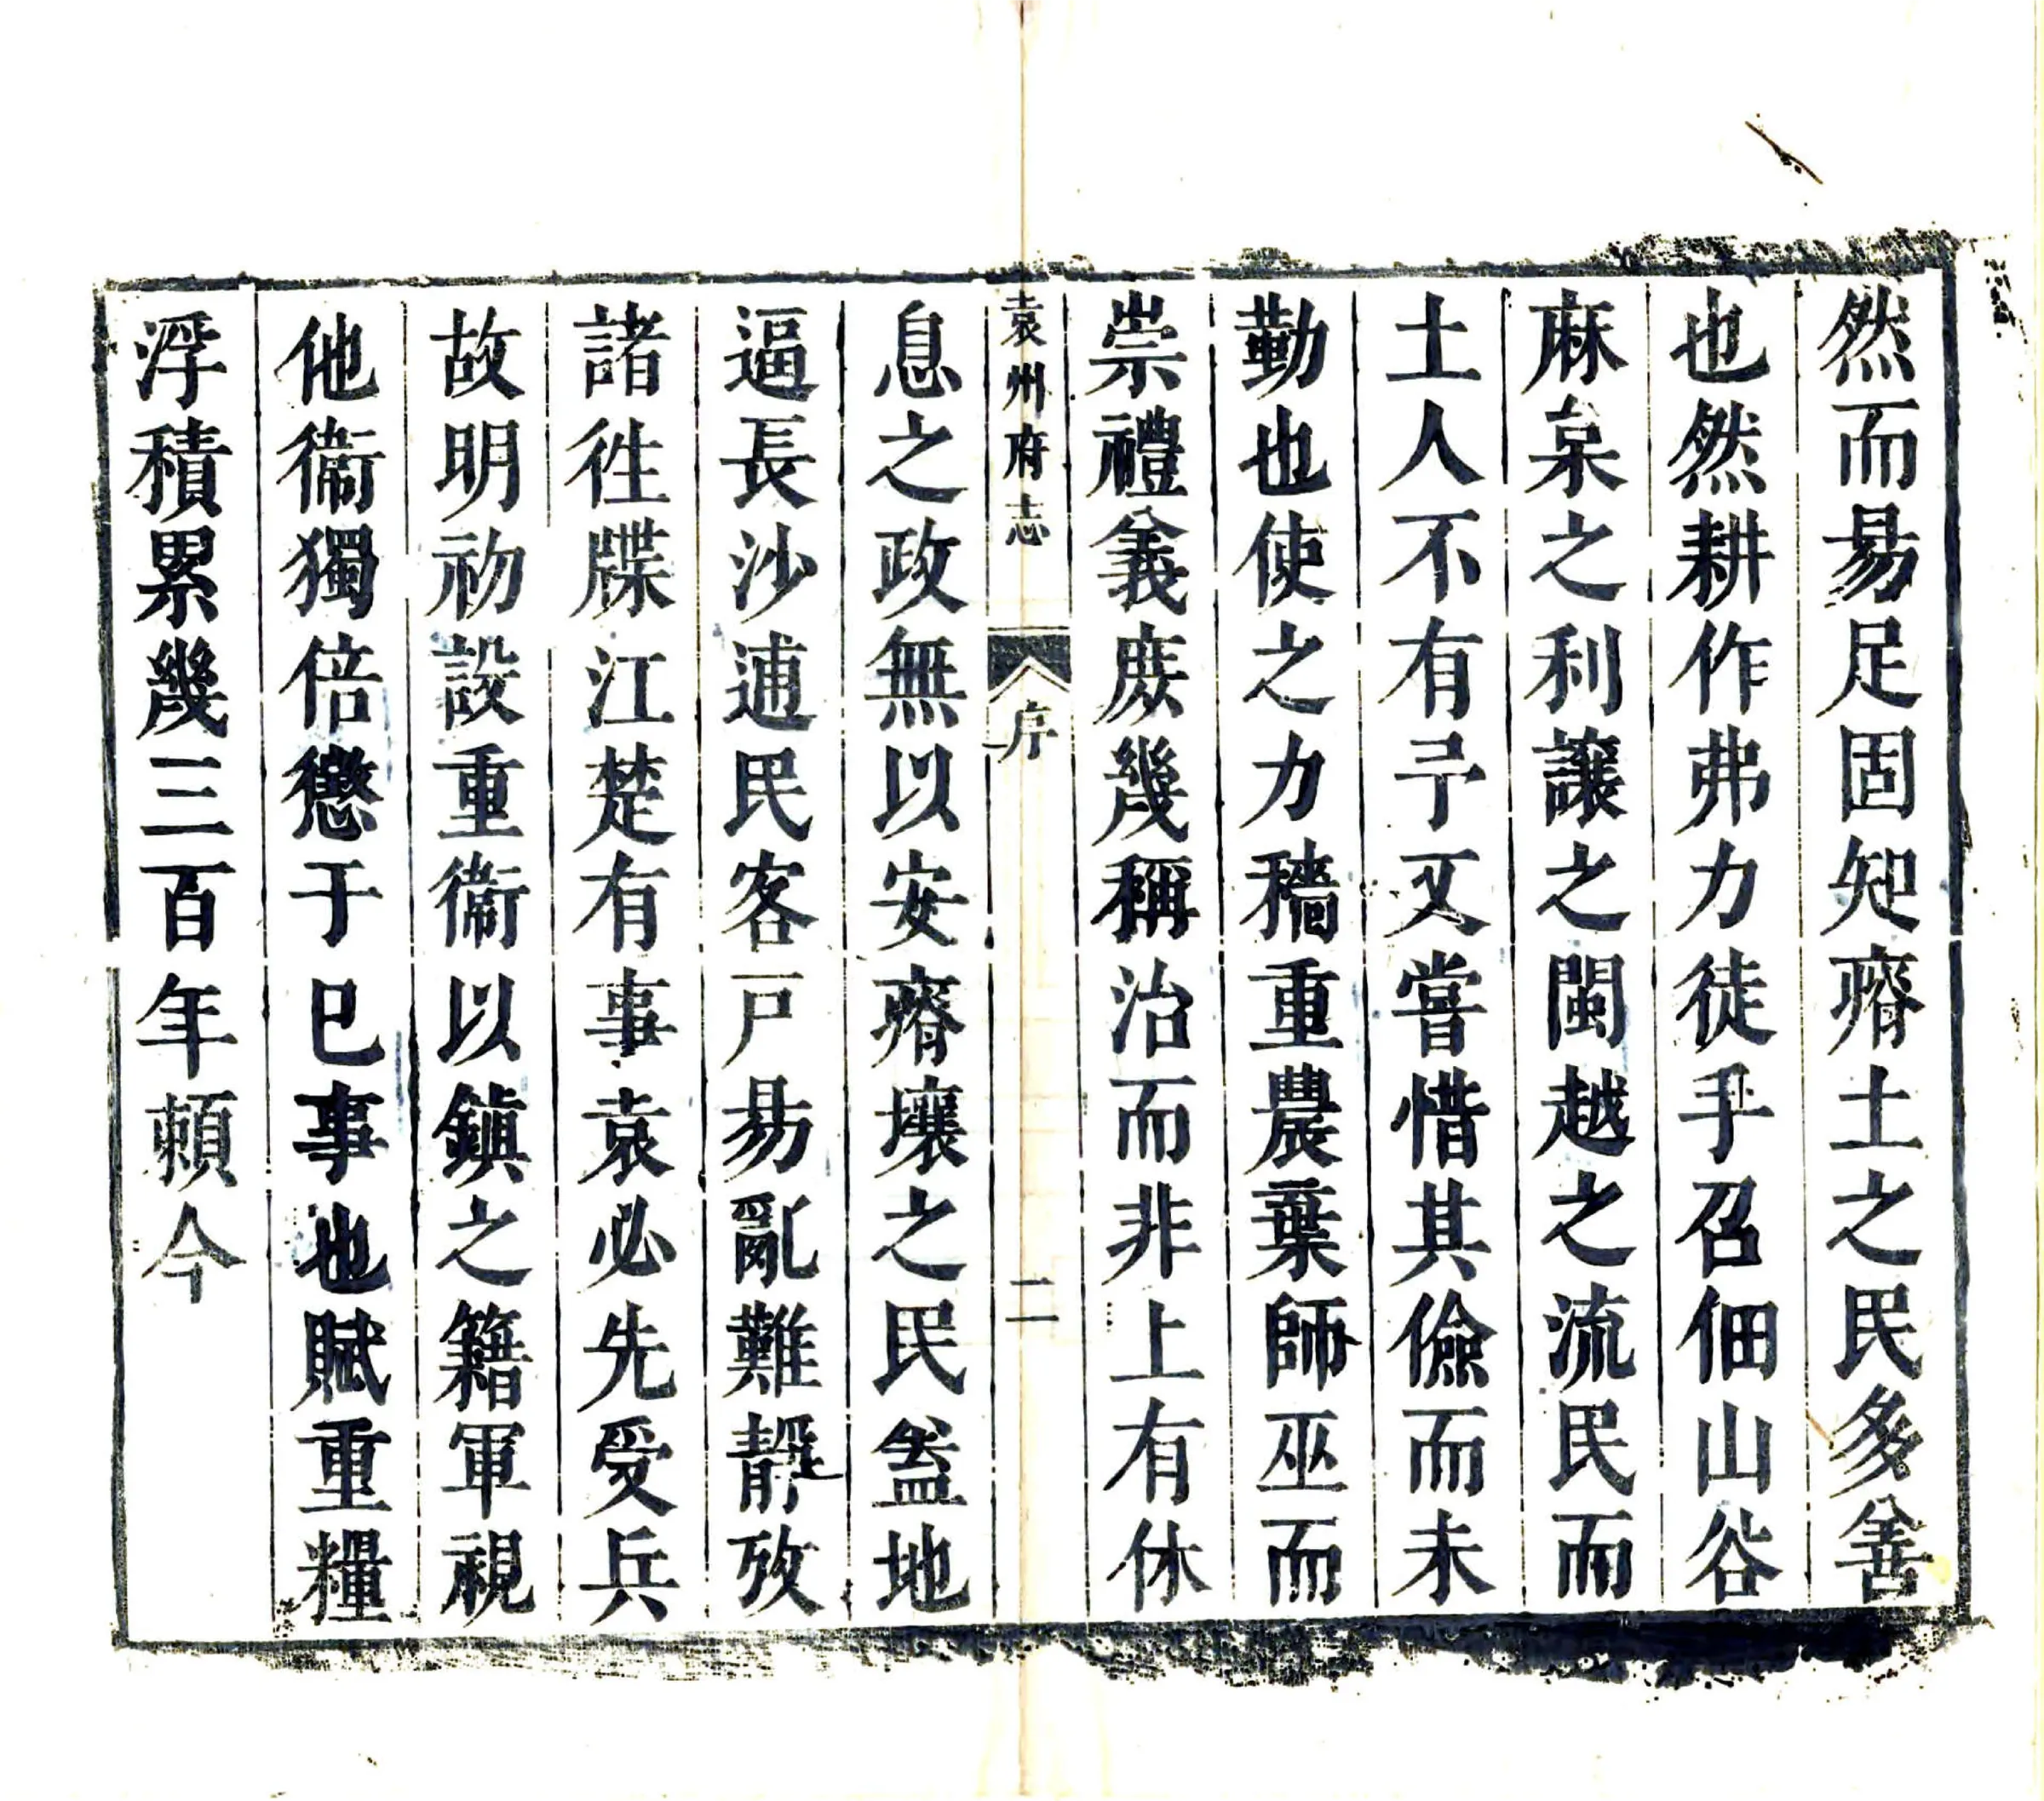 然而易足固知瘠土之民多善
也然耕作弗力徒手召佃山谷
麻枲之利讓之閩越之流民而
土人不有予又嘗惜其儉而未
勤也使之力穡重農棄師巫而
崇禮義庶幾稱治而非上有休
袁州府志
序
二
息之政無以安瘠壤之民盖地
逼長沙逋民客戸易亂難靜攷
諸徃牒江楚有事袁必先受兵
故明初設重衞以鎮之籍軍視
他衞獨倍懲于巳事也賦重糧
浮積累幾三百年頼今